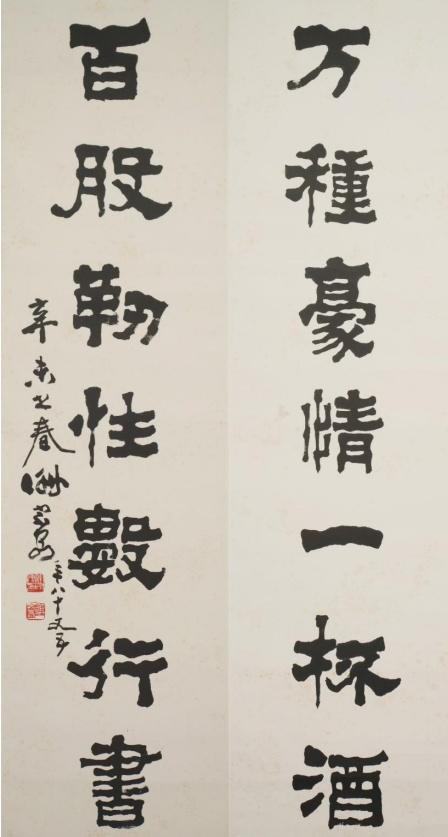 万種豪情一杯酒
百股勒性數行書
辛未之春
年八十又五